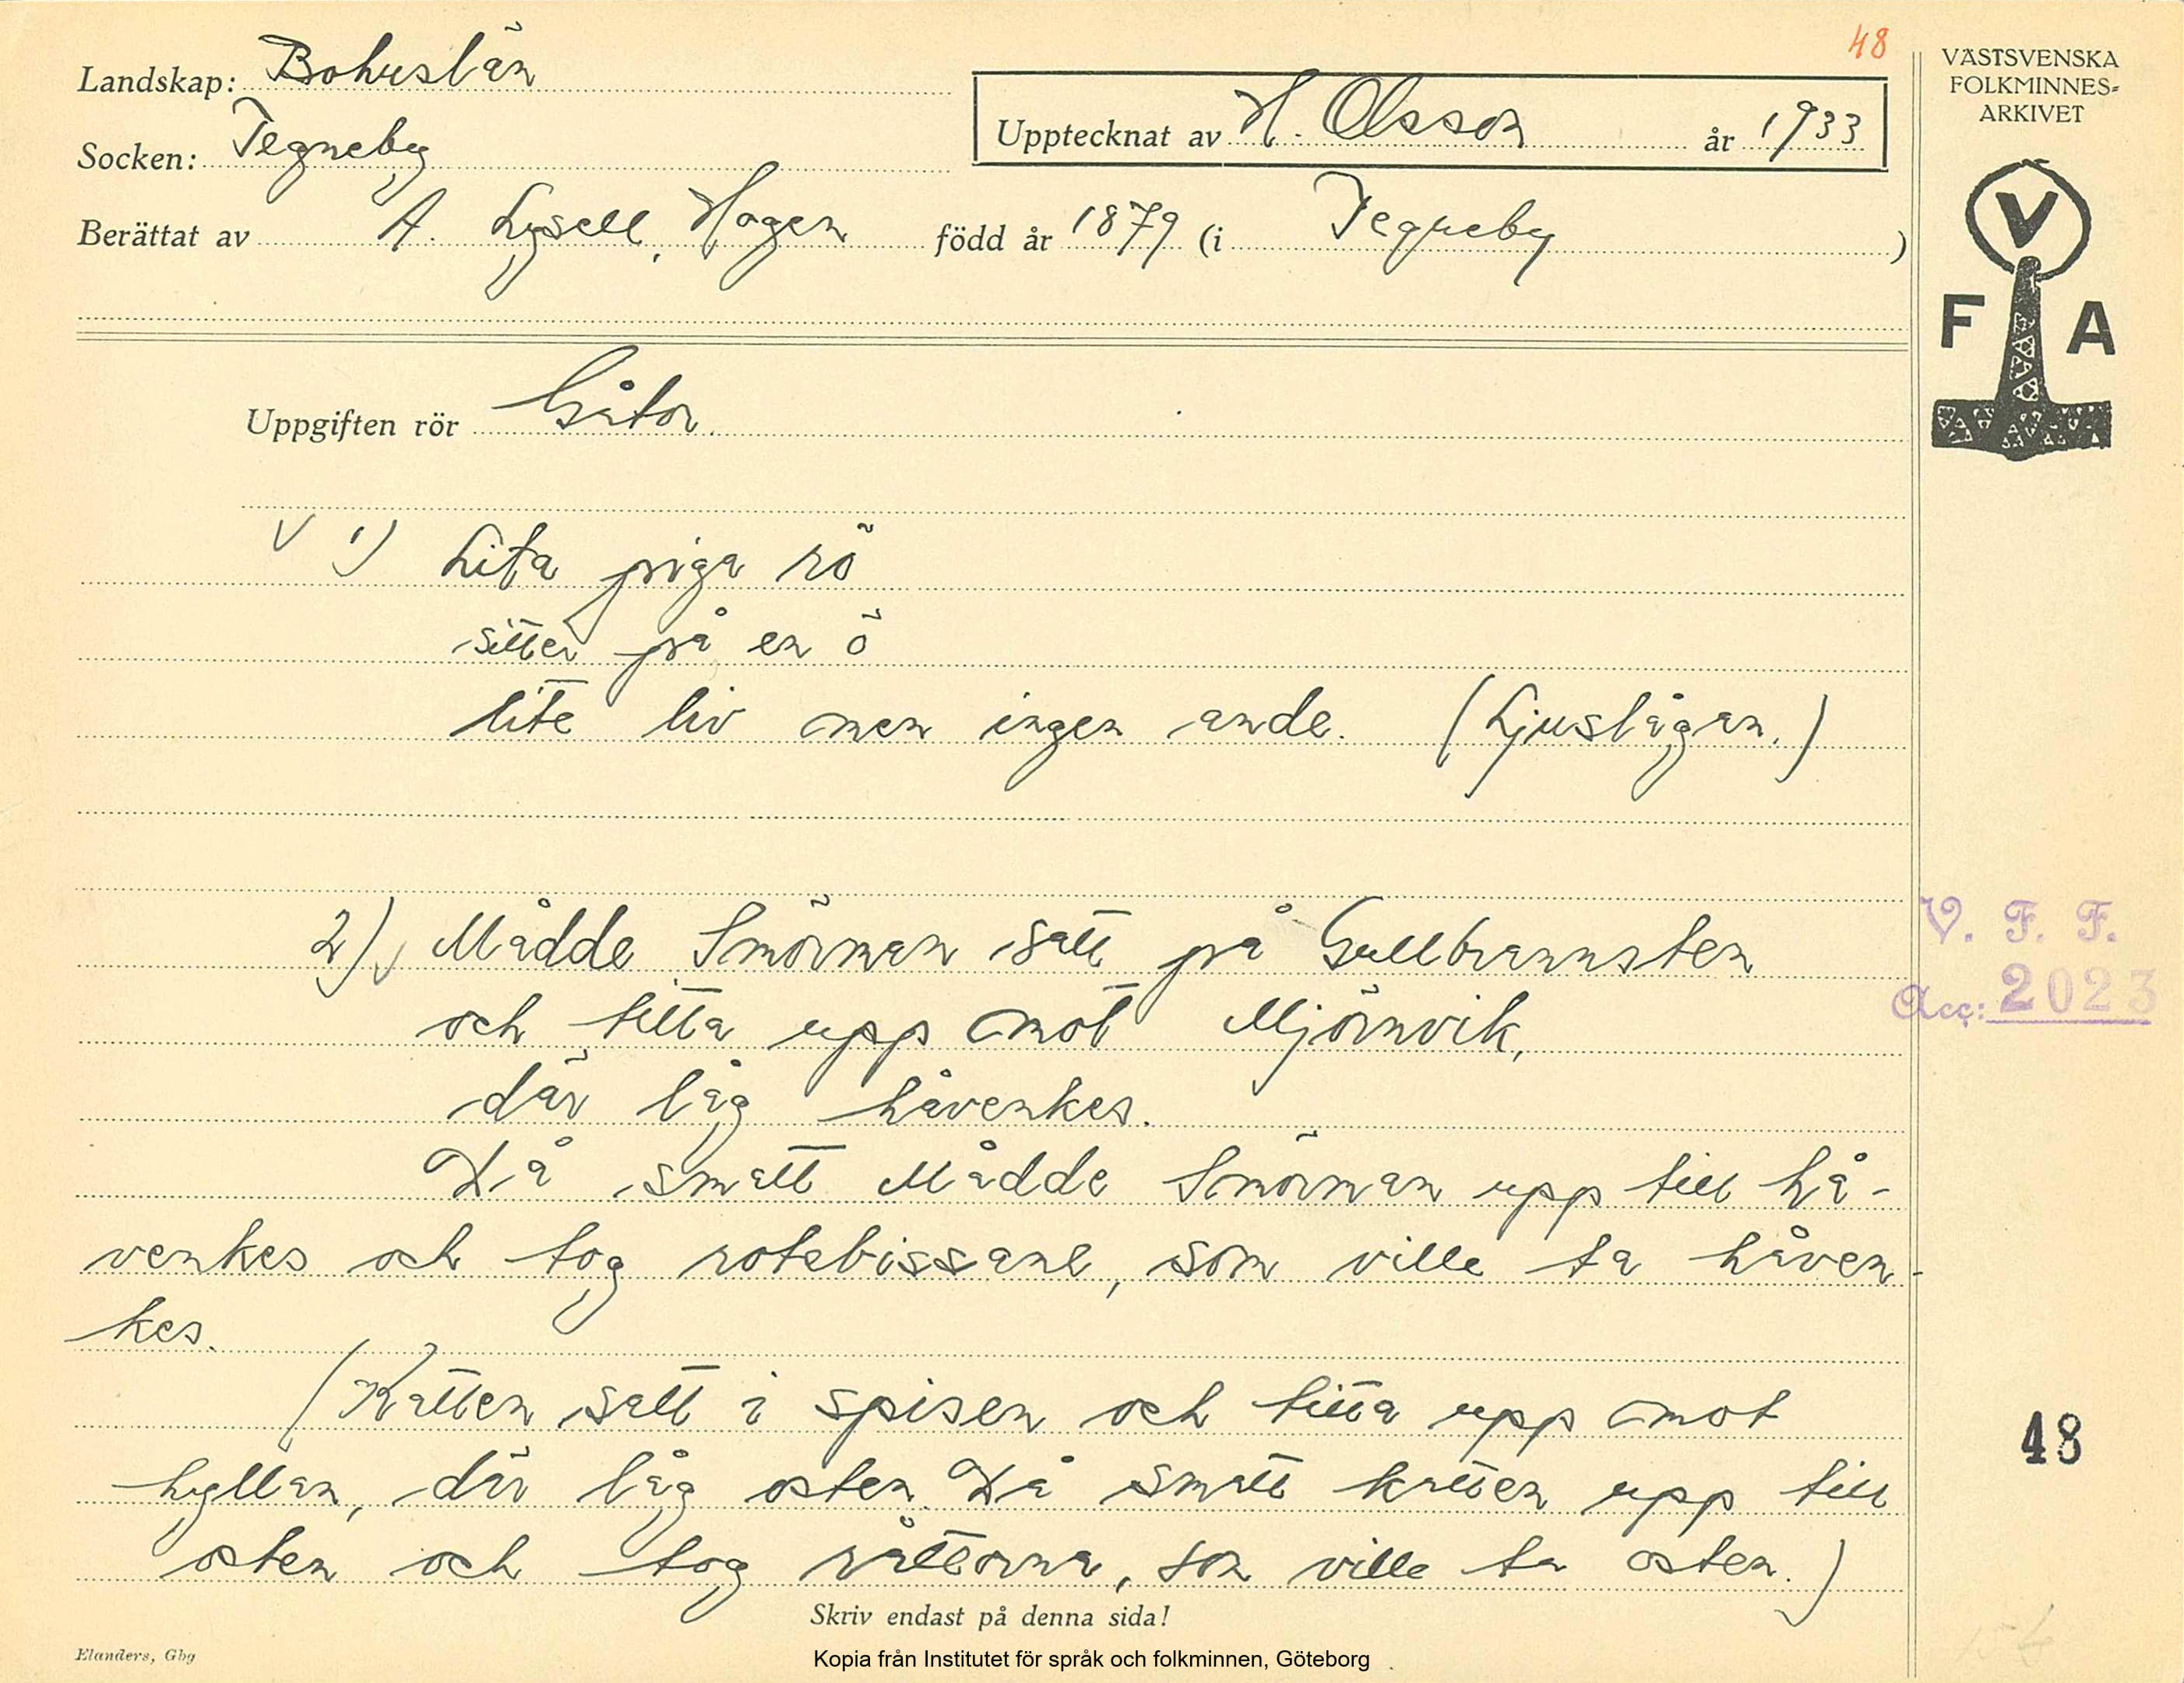 48
Landskap: Bohuslän
Socken: Tegneby
Upptecknat av H. Olsson år 1933
Berättat av A. Lysell, Hagen född år 1879 (i Tegneby)
VÄSTSVENSKA
FOLKMINNES-
ARKIVET
V
F A
Uppgiften rör Gåtor.
V 1) Lita piga rö
sitter på en ö
lite liv men ingen ande. (Ljuslågan.)
2) Mådde Smörman satt på Gullbrannsten
och titta upp mot Mjörnvik,
där låg håvenkes.
Då smatt Mådde Smörman upp till hå-
venkes och tog rotebissane, som ville ta håven-
kes.
(Katten satt i spisen och titta upp mot
hyllan, där låg osten. Då smatt katten upp till
osten och tog råttorna, som ville ta osten.)
V. F. F.
Acc: 2023
48
Skriv endast på denna sida!
Elanders, Gbg
Kopia från Institutet för språk och folkminnen, Göteborg